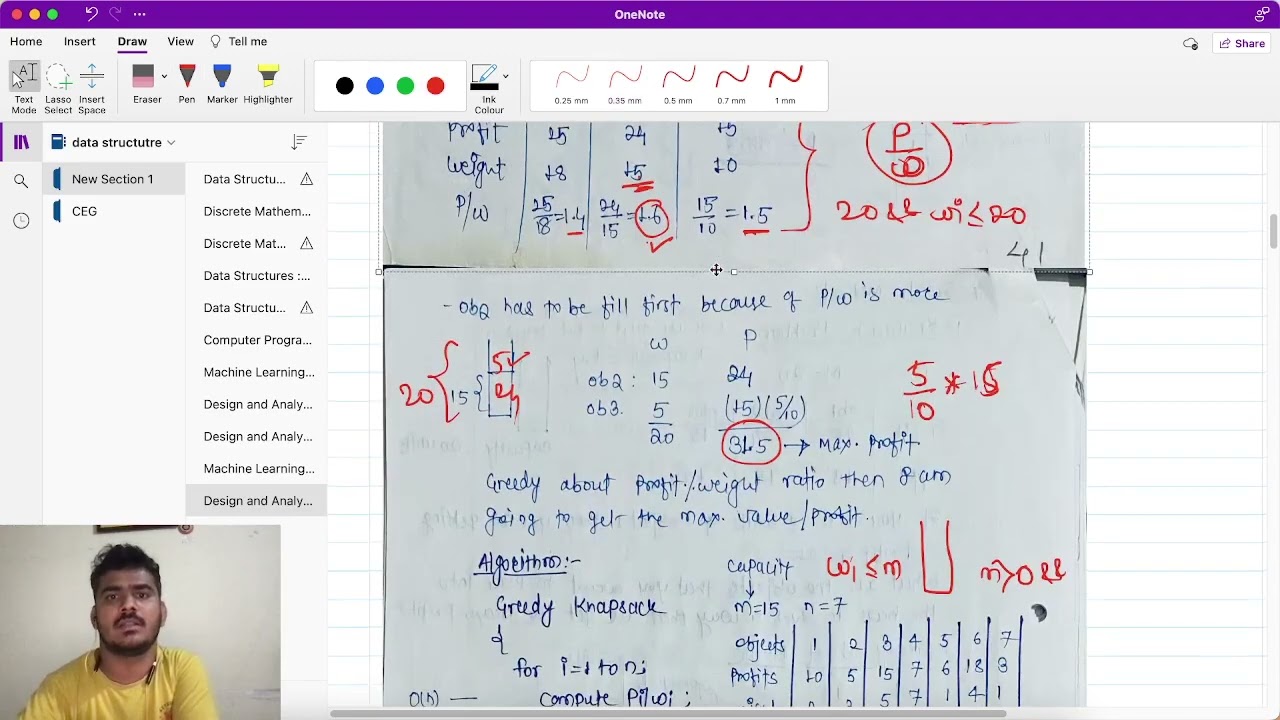 OneNote
Home Insert Draw View Tell me
Share
Text Mode
Lasso Select
Insert Space
Eraser
Pen
Marker
Highlighter
Ink Colour
0.25 mm 0.35 mm 0.5 mm 0.7 mm 1 mm
data structutre
New Section 1
CEG
Data Structu...
Discrete Mathem...
Discrete Mat...
Data Structures :...
Data Structu...
Computer Progra...
Machine Learning...
Design and Analy...
Design and Analy...
Machine Learning...
Design and Analy...
Profit 25 24 15
Weight 18 15 10
P/w 25/18=1.4 24/15=1.6 15/10=1.5
P/w
20 && wi ≤ 20
41
- ob2 has to be fill first because of P/w is more
w P
20 { 15 { 5
ob2 : 15 24
ob3. 5 (15)(5/10)
20 31.5 → Max. Profit
5/10 * 15
Greedy about profit/weight ratio then I am
going to get the max. value/profit.
Algorithm:-
capacity
wi ≤ m
m>0 &&
Greedy Knapsack
m=15 n=7
{
for i=1 to n;
O(n) — compute Pi/wi ;
objects 1 2 3 4 5 6 7
Profits 10 5 15 7 6 18 3
5 7 1 4 1